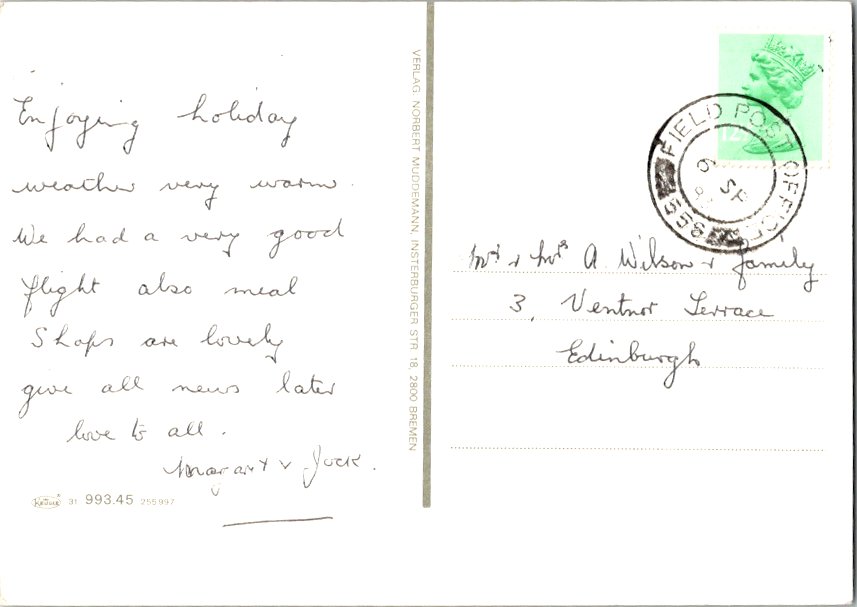 Enjoying holiday
weather very warm.
We had a very good
flight also meal
Shops are lovely
give all news later
love to all.
Margaret & Jock.
KRÜGER 31 993.45 255997
VERLAG: NORBERT MUDDEMANN, INSTERBURGER STR. 18, 2800 BREMEN
12
FIELD POST OFFICE
6 SP
558
Mr & Mrs A. Wilson & family
3, Ventnor Terrace
Edinburgh